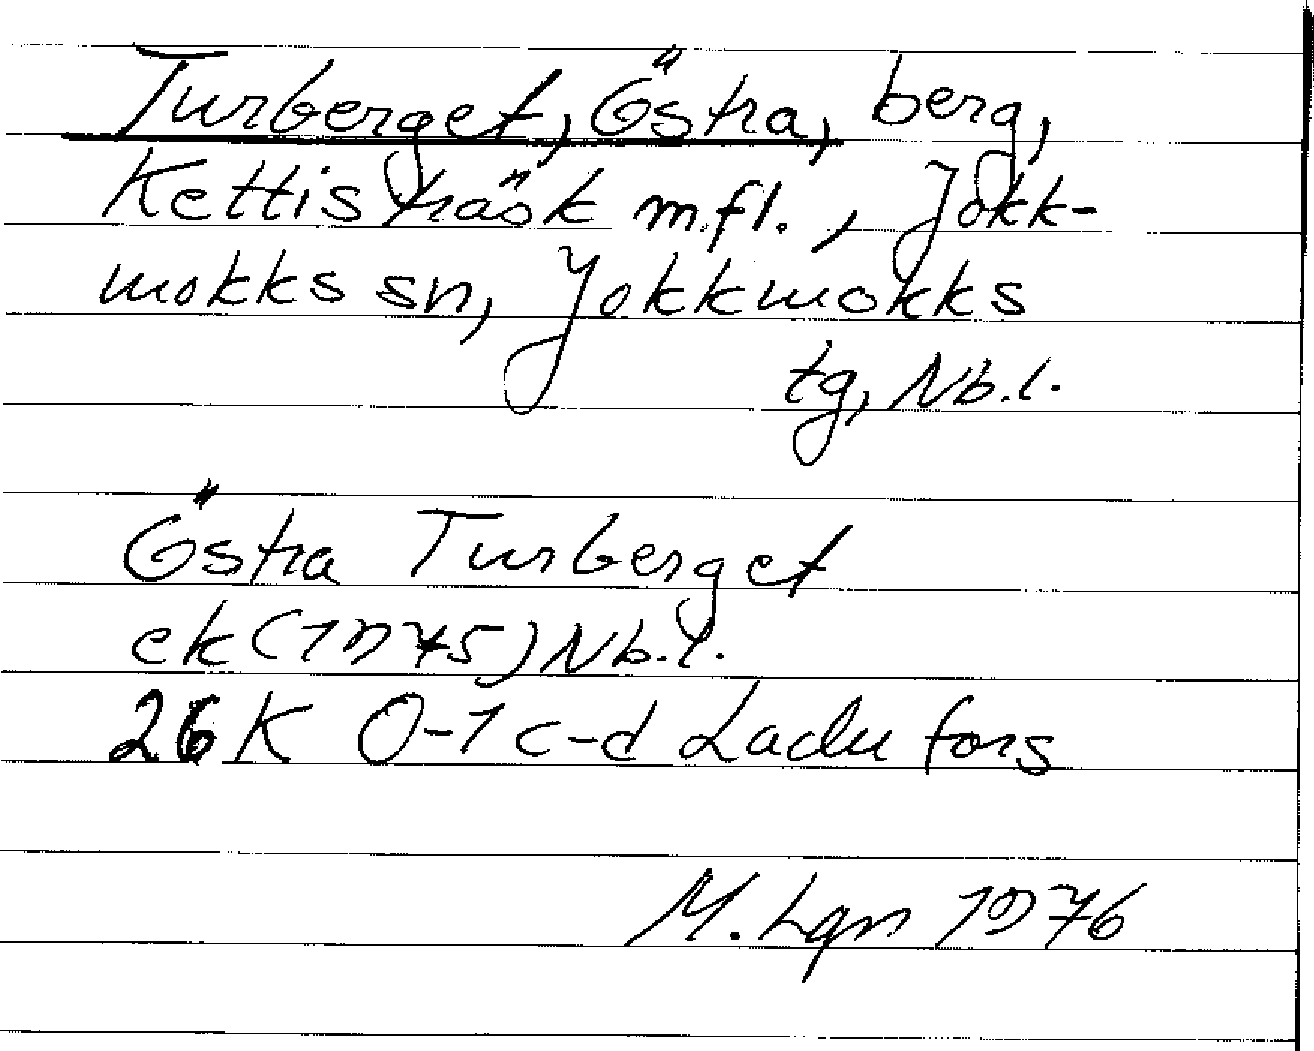 Turberget, Östra, berg,
Kettisträsk m.fl., Jokk-
mokks sn, Jokkmokks
tg, Nb.l.
Östra Turberget
ek (1975) Nb.l.
26K 0-1 c-d Ladufors
M. Lgn 1976